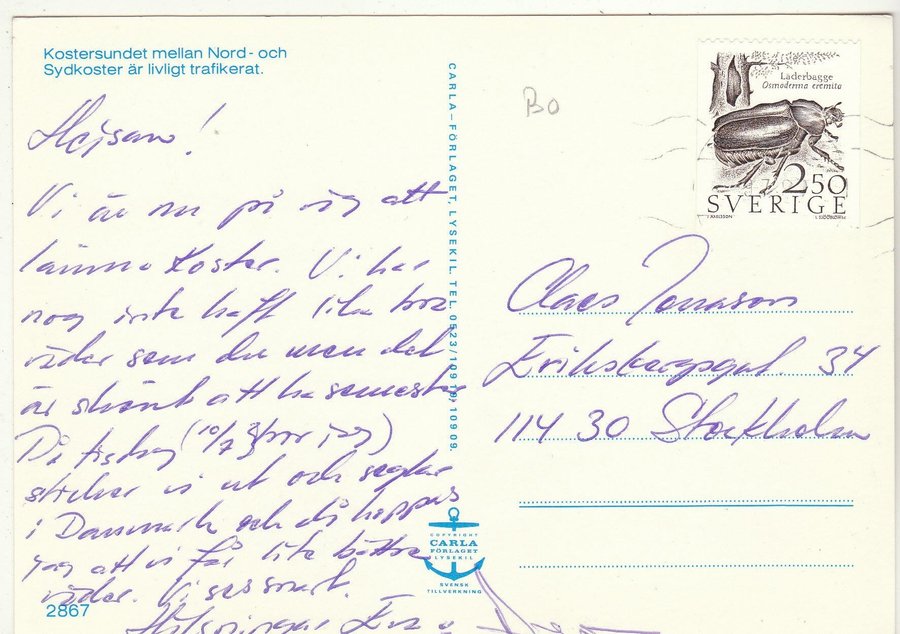 Kostersundet mellan Nord- och
Sydkoster är livligt trafikerat.
Hejsan!
Vi är nu på väg att
lämna Koster. Vi har
nog inte haft lika bra
väder som du men det
är skönt att ha semester
På tisdag (10/7
sticker vi ut och seglar
i Danmark och då hoppas
jag att vi får lite bättre
väder. Vi ses snart.
Hälsningar Eva
2867
CARLA-FÖRLAGET, LYSEKIL. TEL. 0523/109 19, 109 09.
COPYRIGHT
CARLA
FÖRLAGET
LYSEKIL
SVENSK
TILLVERKNING
BO
Läderbagge
Osmoderma eremita
2.50
SVERIGE
Claes Jonason
Eriksbergsgat. 34
114 30 Stockholm